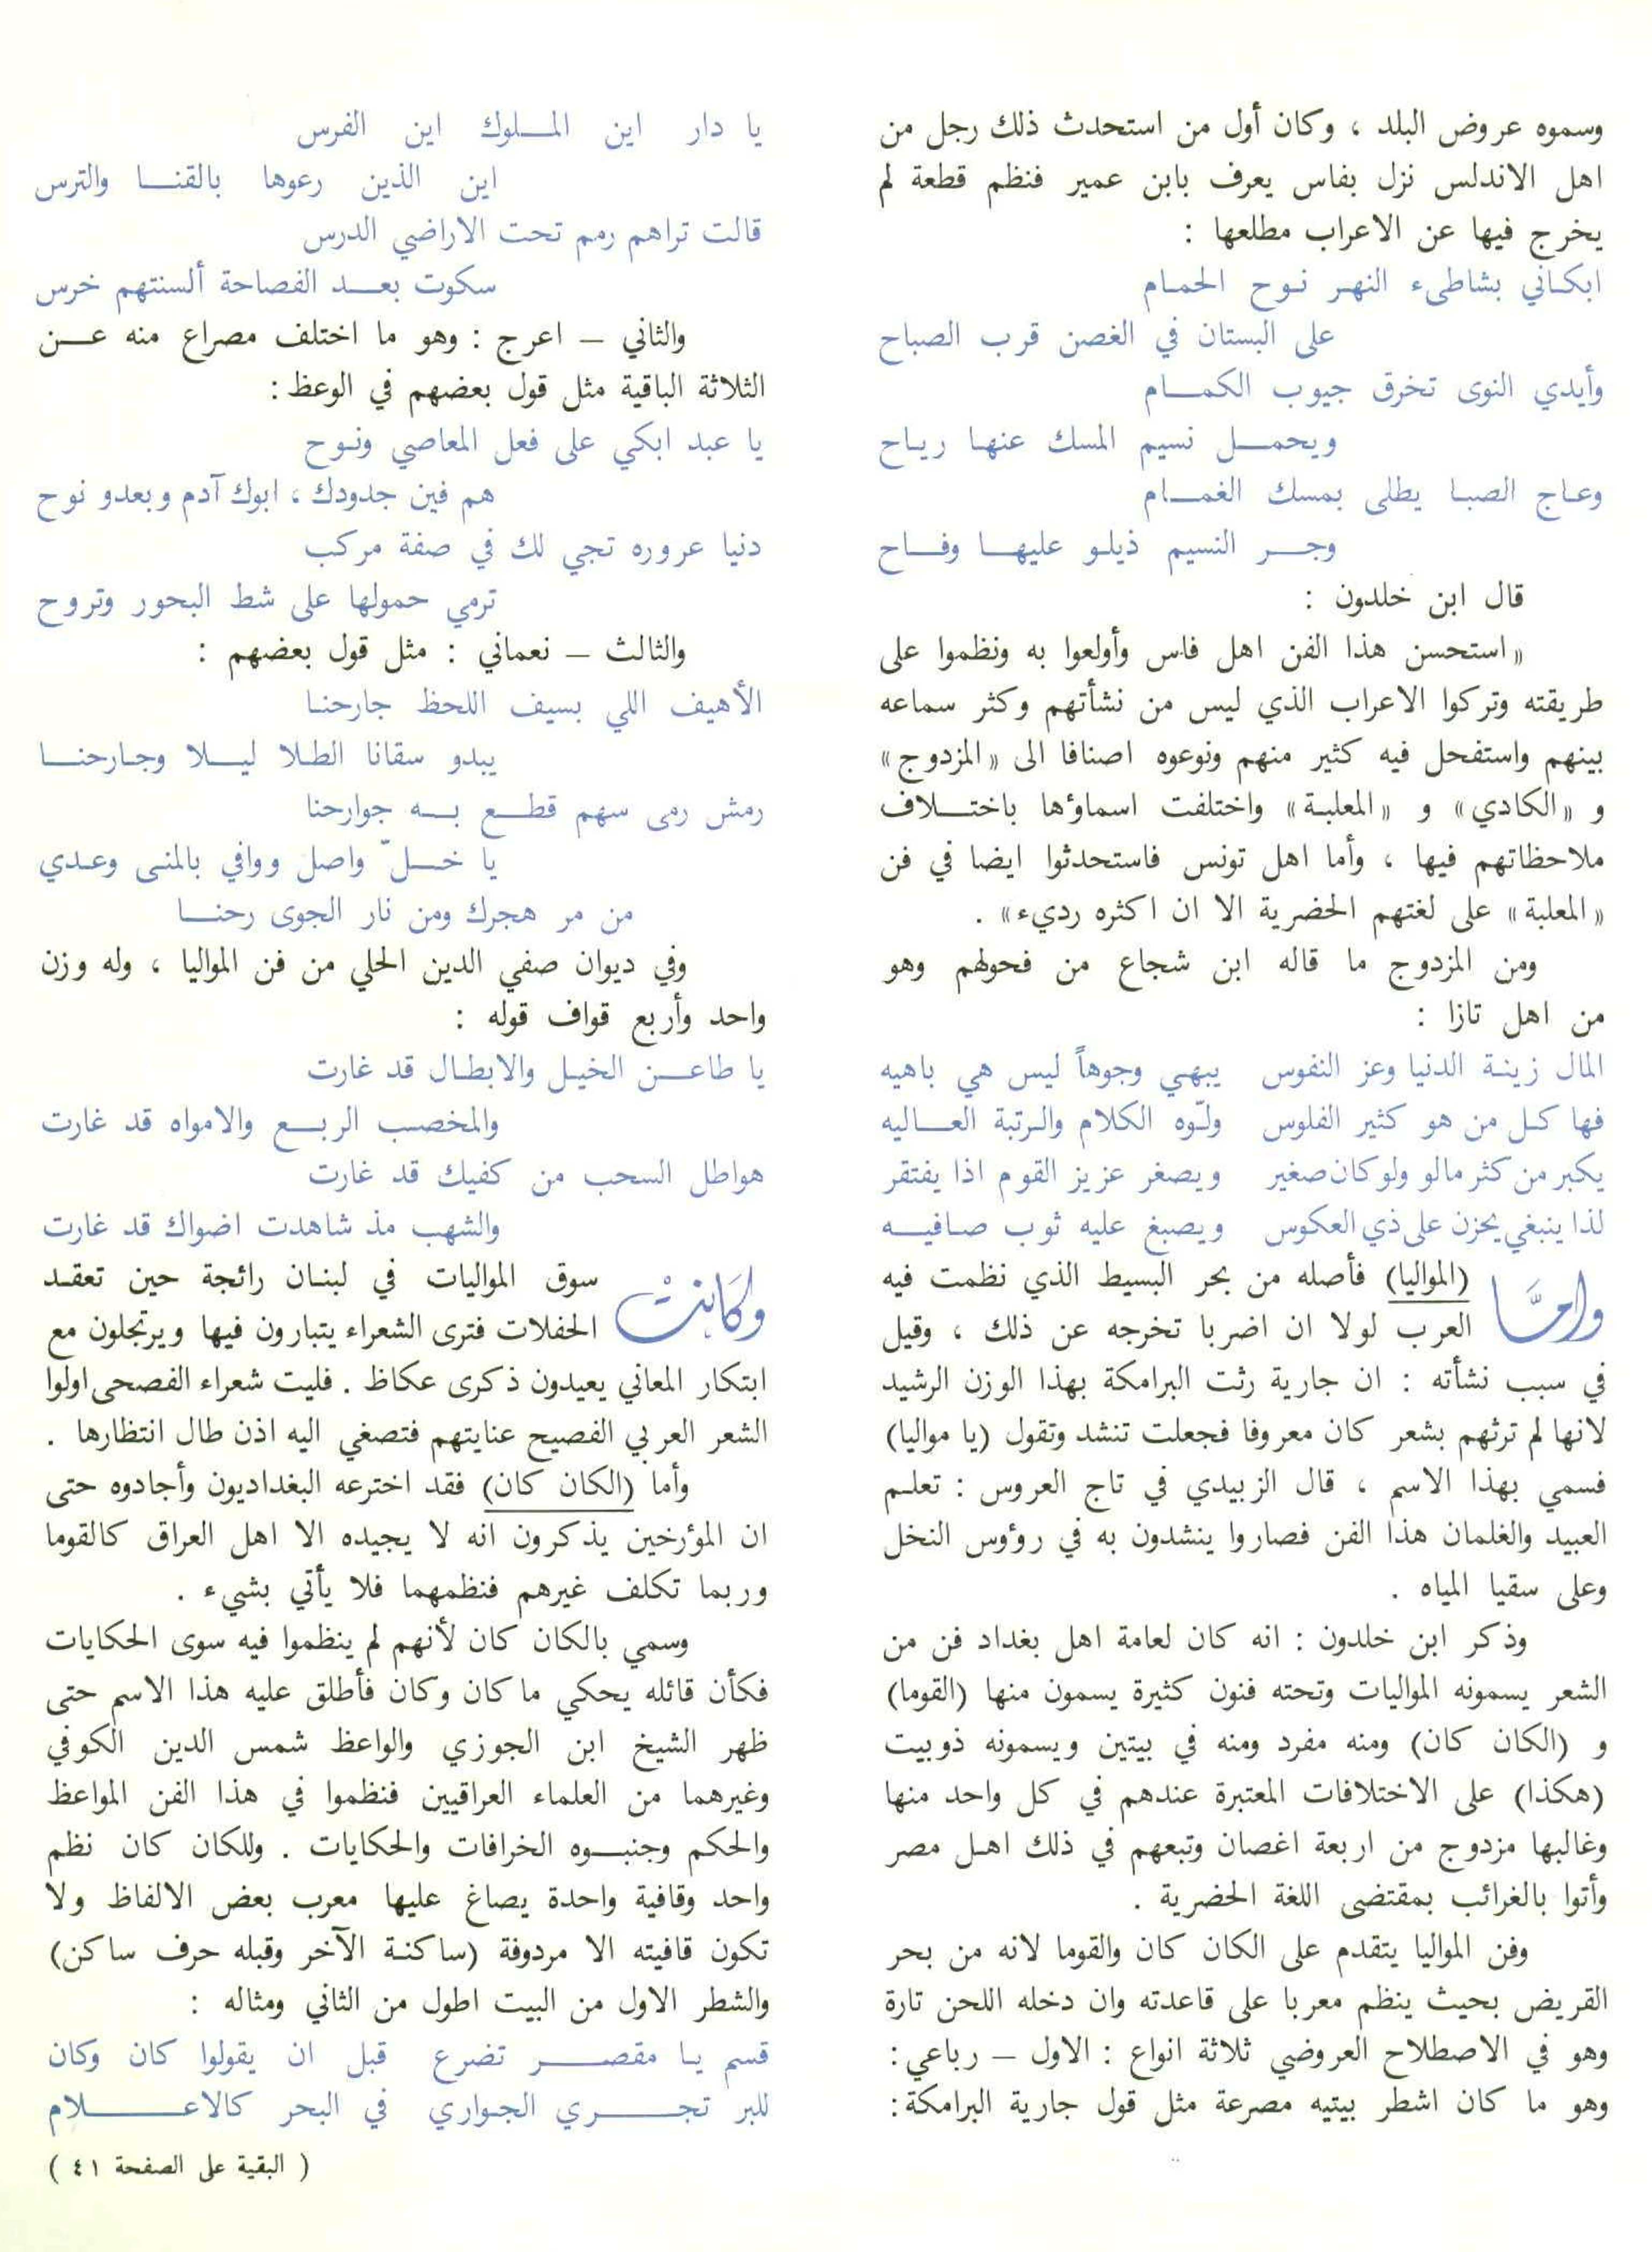 وسموه عروض البلد ، وكان أول من استحدث ذلك رجل من
اهل الاندلس نزل بفاس يعرف بابن عمير فنظم قطعة لم
يخرج فيها عن الاعراب مطلعها :
ابكاني بشاطىء النهر نوح الحمام
على البستان في الغصن قرب الصباح
وأيدي النوى تخرق جيوب الكمام
ويحمل نسيم المسك عنها رياح
وعاج الصبا يطلى بمسك الغمام
وجر النسيم ذيلو عليها وفاح
قال ابن خلدون :
« استحسن هذا الفن اهل فاس وأولعوا به ونظموا على
طريقته وتركوا الاعراب الذي ليس من نشأتهم وكثر سماعه
بينهم واستفحل فيه كثير منهم ونوعوه اصنافا الى «المزدوج»
و «الكادي» و «المعلبة» واختلفت اسماؤها باختلاف
ملاحظاتهم فيها ، وأما اهل تونس فاستحدثوا ايضا في فن
«المعلبة» على لغتهم الحضرية الا ان اكثره رديء» .
ومن المزدوج ما قاله ابن شجاع من فحولهم وهو
من اهل تازا :
المال زينة الدنيا وعز النفوس يبهي وجوهاً ليس هي باهيه
فها كل من هو كثير الفلوس ولّوه الكلام والرتبة العاليه
يكبر من كثر مالو ولو كان صغير ويصغر عزيز القوم اذا يفتقر
لذا ينبغي يحزن على ذي العكوس ويصبغ عليه ثوب صافيه
وامّا (المواليا) فأصله من بحر البسيط الذي نظمت فيه
العرب لولا ان اضربا تخرجه عن ذلك ، وقيل
في سبب نشأته : ان جارية رثت البرامكة بهذا الوزن الرشيد
لانها لم ترثهم بشعر كان معروفا فجعلت تنشد وتقول (يا مواليا)
فسمي بهذا الاسم ، قال الزبيدي في تاج العروس : تعلم
العبيد والغلمان هذا الفن فصاروا ينشدون به في رؤوس النخل
وعلى سقيا المياه .
وذكر ابن خلدون : انه كان لعامة اهل بغداد فن من
الشعر يسمونه المواليات وتحته فنون كثيرة يسمون منها (القوما)
و (الكان كان) ومنه مفرد ومنه في بيتين ويسمونه ذوبيت
(هكذا) على الاختلافات المعتبرة عندهم في كل واحد منها
وغالبها مزدوج من اربعة اغصان وتبعهم في ذلك اهل مصر
وأتوا بالغرائب بمقتضى اللغة الحضرية .
وفن المواليا يتقدم على الكان كان والقوما لانه من بحر
القريض بحيث ينظم معربا على قاعدته وان دخله اللحن تارة
وهو في الاصطلاح العروضي ثلاثة انواع : الاول – رباعي :
وهو ما كان اشطر بيتيه مصرعة مثل قول جارية البرامكة :
يا دار اين الملوك اين الفرس
اين الذين رعوها بالقنا والترس
قالت تراهم رمم تحت الاراضي الدرس
سكوت بعد الفصاحة ألسنتهم خرس
والثاني – اعرج : وهو ما اختلف مصراع منه عن
الثلاثة الباقية مثل قول بعضهم في الوعظ :
يا عبد ابكي على فعل المعاصي ونوح
هم فين جدودك ، ابوك آدم وبعدو نوح
دنيا عروره تجي لك في صفة مركب
ترمي حمولها على شط البحور وتروح
والثالث – نعماني : مثل قول بعضهم :
الأهيف اللي بسيف اللحظ جارحنا
يبدو سقانا الطلا ليلا وجارحنا
رمش رمى سهم قطع به جوارحنا
يا خلّ واصل ووافي بالمنى وعدي
من مر هجرك ومن نار الجوى رحنا
وفي ديوان صفي الدين الحلي من فن المواليا ، وله وزن
واحد وأربع قواف قوله :
يا طاعن الخيل والابطال قد غارت
والمخصب الربع والامواه قد غارت
هواطل السحب من كفيك قد غارت
والشهب مذ شاهدت اضواك قد غارت
وكَانتْ سوق المواليات في لبنان رائجة حين تعقد
الحفلات فترى الشعراء يتبارون فيها ويرتجلون مع
ابتكار المعاني يعيدون ذكرى عكاظ . فليت شعراء الفصحى اولوا
الشعر العربي الفصيح عنايتهم فتصغي اليه اذن طال انتظارها .
وأما (الكان كان) فقد اخترعه البغداديون وأجادوه حتى
ان المؤرخين يذكرون انه لا يجيده الا اهل العراق كالقوما
وربما تكلف غيرهم فنظمهما فلا يأتي بشيء .
وسمي بالكان كان لأنهم لم ينظموا فيه سوى الحكايات
فكأن قائله يحكي ما كان وكان فأطلق عليه هذا الاسم حتى
ظهر الشيخ ابن الجوزي والواعظ شمس الدين الكوفي
وغيرهما من العلماء العراقيين فنظموا في هذا الفن المواعظ
والحكم وجنبوه الخرافات والحكايات . وللكان كان نظم
واحد وقافية واحدة يصاغ عليها معرب بعض الالفاظ ولا
تكون قافيته الا مردوفة (ساكنة الآخر وقبله حرف ساكن)
والشطر الاول من البيت اطول من الثاني ومثاله :
قسم يا مقصر تضرع قبل ان يقولوا كان وكان
للبر تجري الجواري في البحر كالاعلام
( البقية على الصفحة ٤١ )